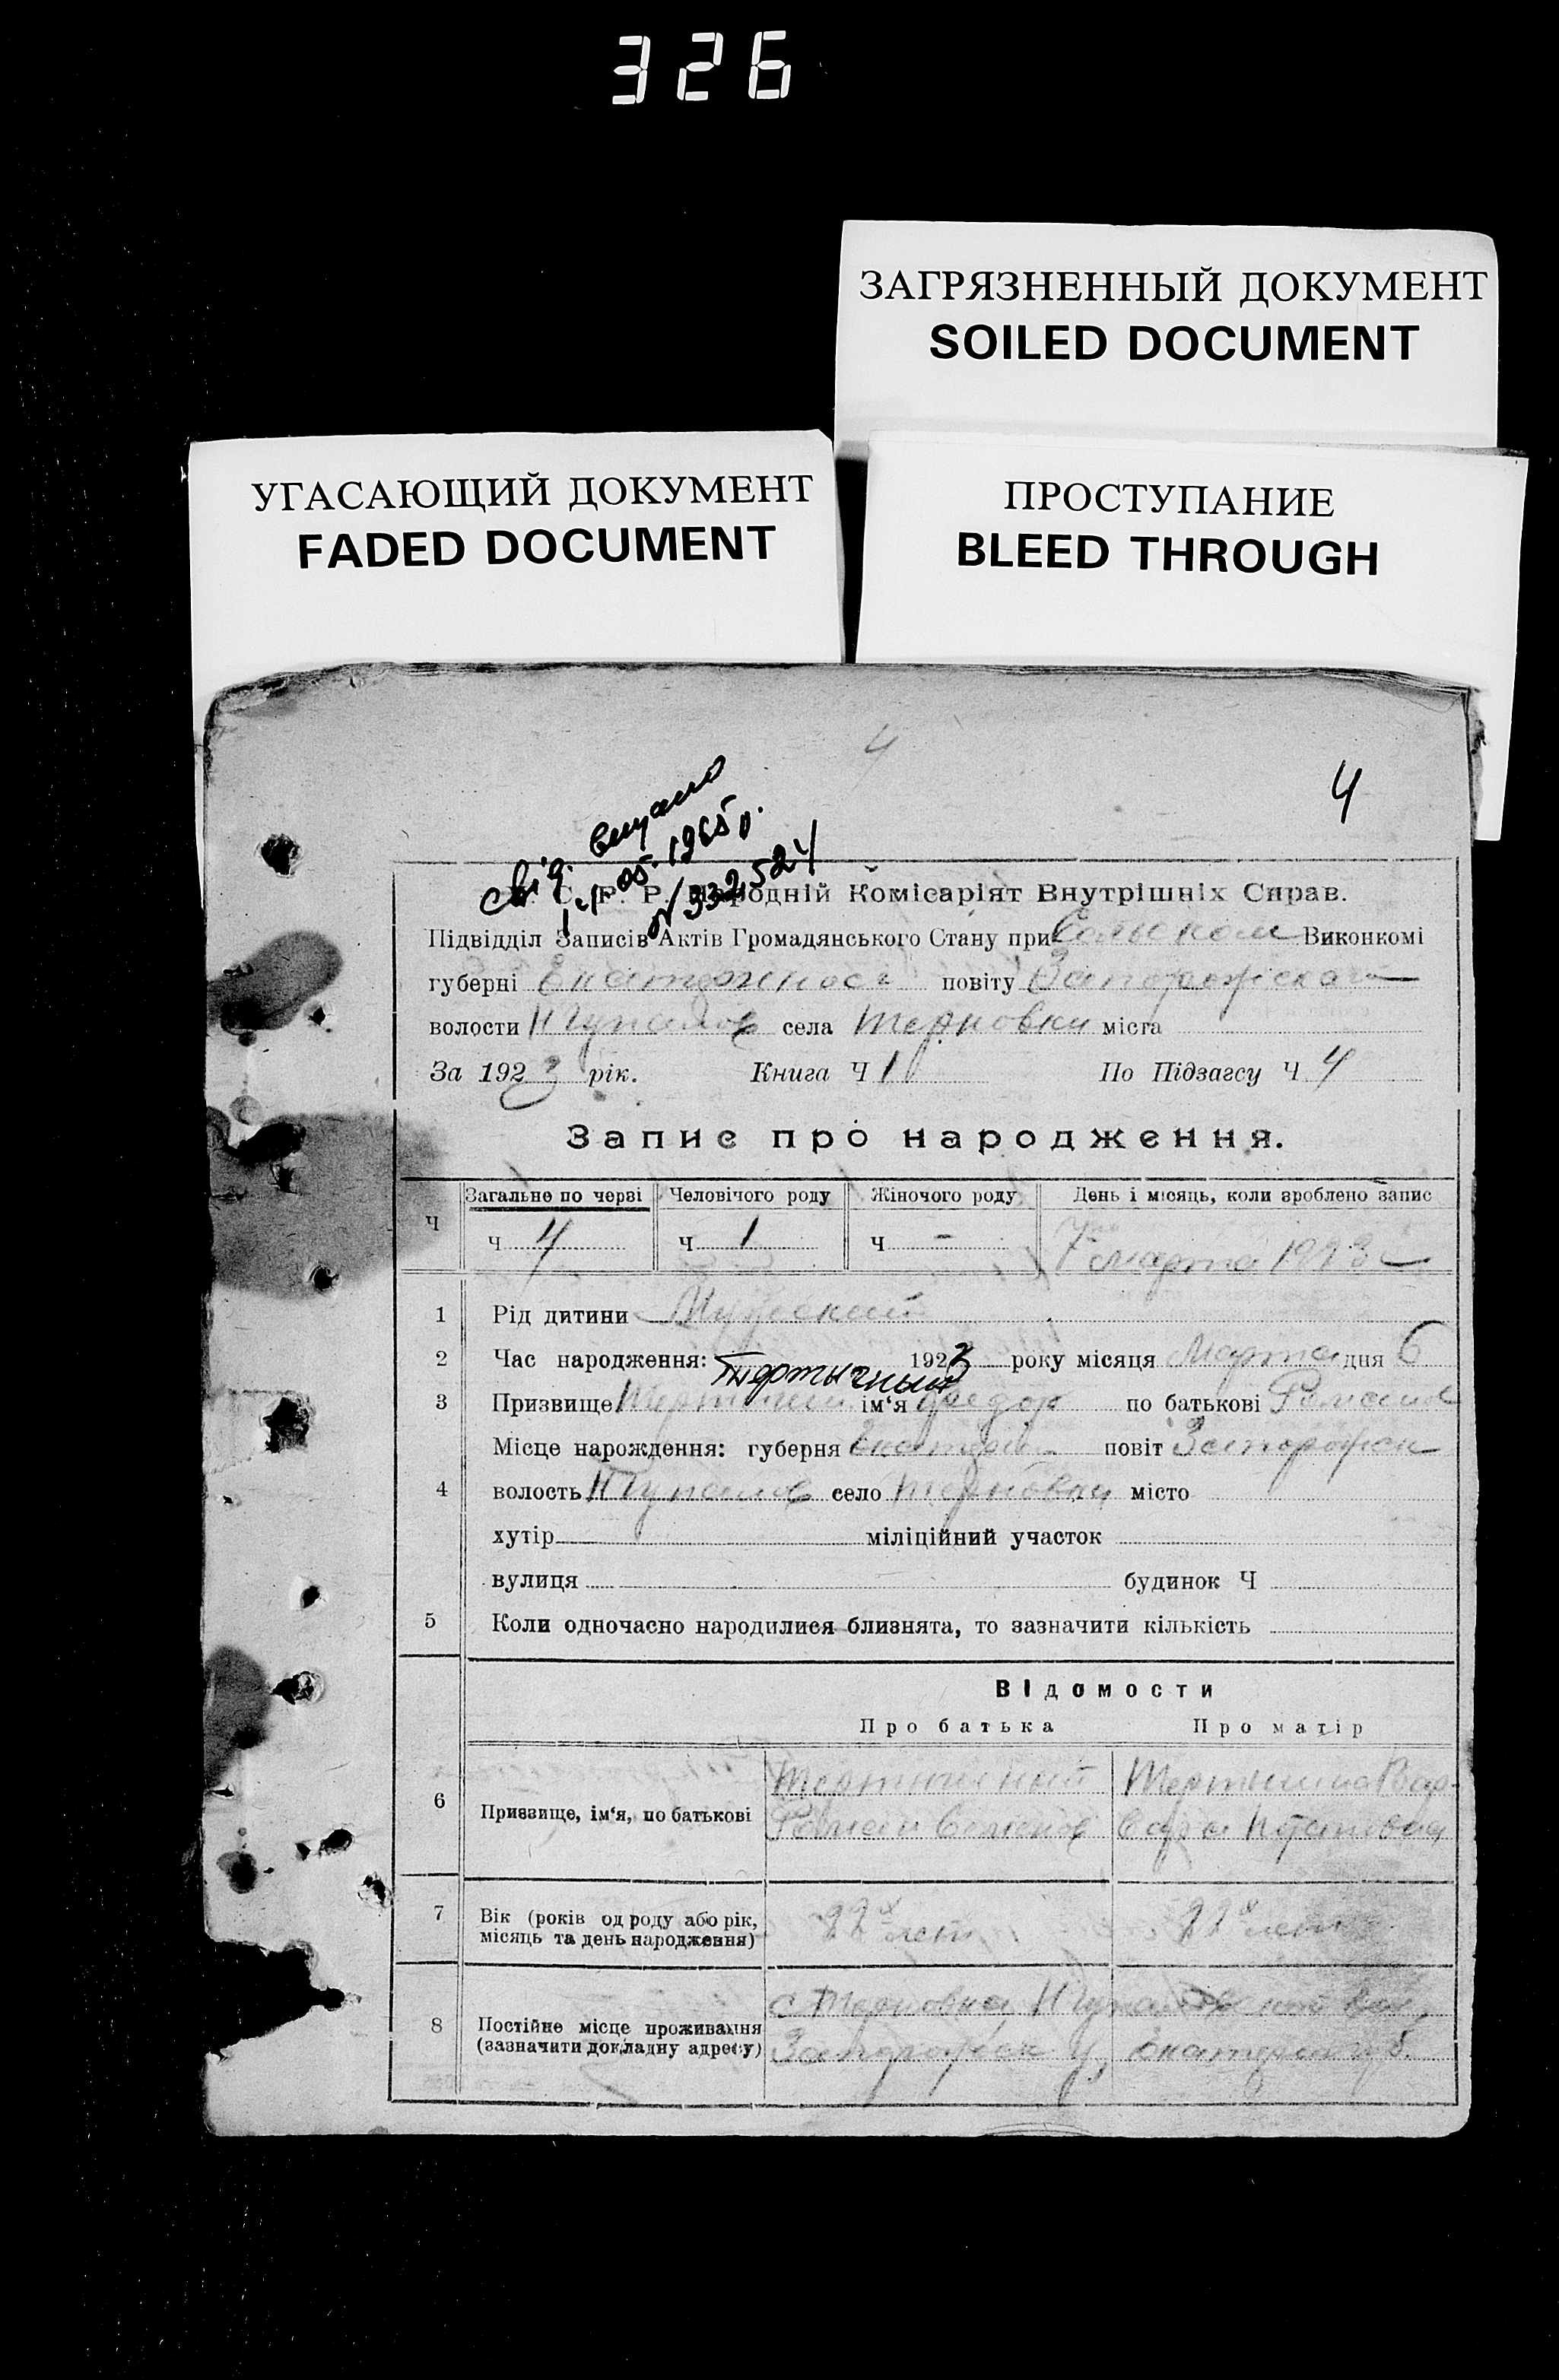 326
ЗАГРЯЗНЕННЫЙ ДОКУМЕНТ
SOILED DOCUMENT
УГАСАЮЩИЙ ДОКУМЕНТ
FADED DOCUMENT
ПРОСТУПАНИЕ
BLEED THROUGH
4
4
видано
1965 р.
С. Р. Р. Народній Комісаріят Внутрішніх Справ.
Підвідділ Записів Актів Громадянського Стану при Виконкомі
губерні повіту
волости села Терновки міста
За 1923 рік. Книга Ч 1 По Підзагсу Ч 4
Запис про народження.
Загальне по черзі Человічого роду Жіночого роду День і місяць, коли зроблено запис
Ч Ч 4 Ч 1 Ч - 7го марта 1923
1 Рід дитини Мужский
2 Час народження: 1923 року місяця Марта дня 6
Тертычный
3 Призвище ім‘я Федор по батькові Роман
Місце нарождення: губерня повіт Запорожск
4 волость село Терновка місто
хутір міліційний участок
вулиця будинок Ч
5 Коли одночасно народилися близнята, то зазначити кількість
Відомости
Про батька Про матір
6 Призвище, ім‘я, по батькові Тертычный
Роман Вар-
вара
7 Вік (років од роду або рік, місяць та день народження) 22х лет 22х лет
8 Постійне місце проживання (зазначити докладну адресу) с Терновка,
Запорожск у,